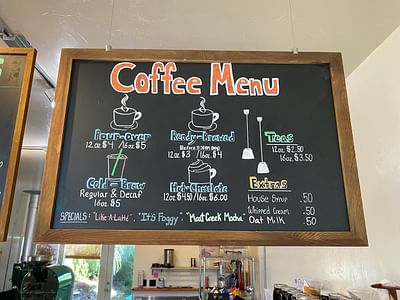 Coffee Menu
Pour-Over
12oz $4 16oz $5
Ready-Brewed
12oz $3 16oz $4
Teas
12oz $2.50
16oz $3.50
Cold-Brew
Regular & Decaf
16oz $5
Hot-Chocolate
12oz $4.50 16oz $6.00
Extras
House Syrup .50
Whipped Cream .50
Oat Milk .50
SPECIALS: "Like-A-Latte", "It's Foggy", "Mast Creek Mocha"